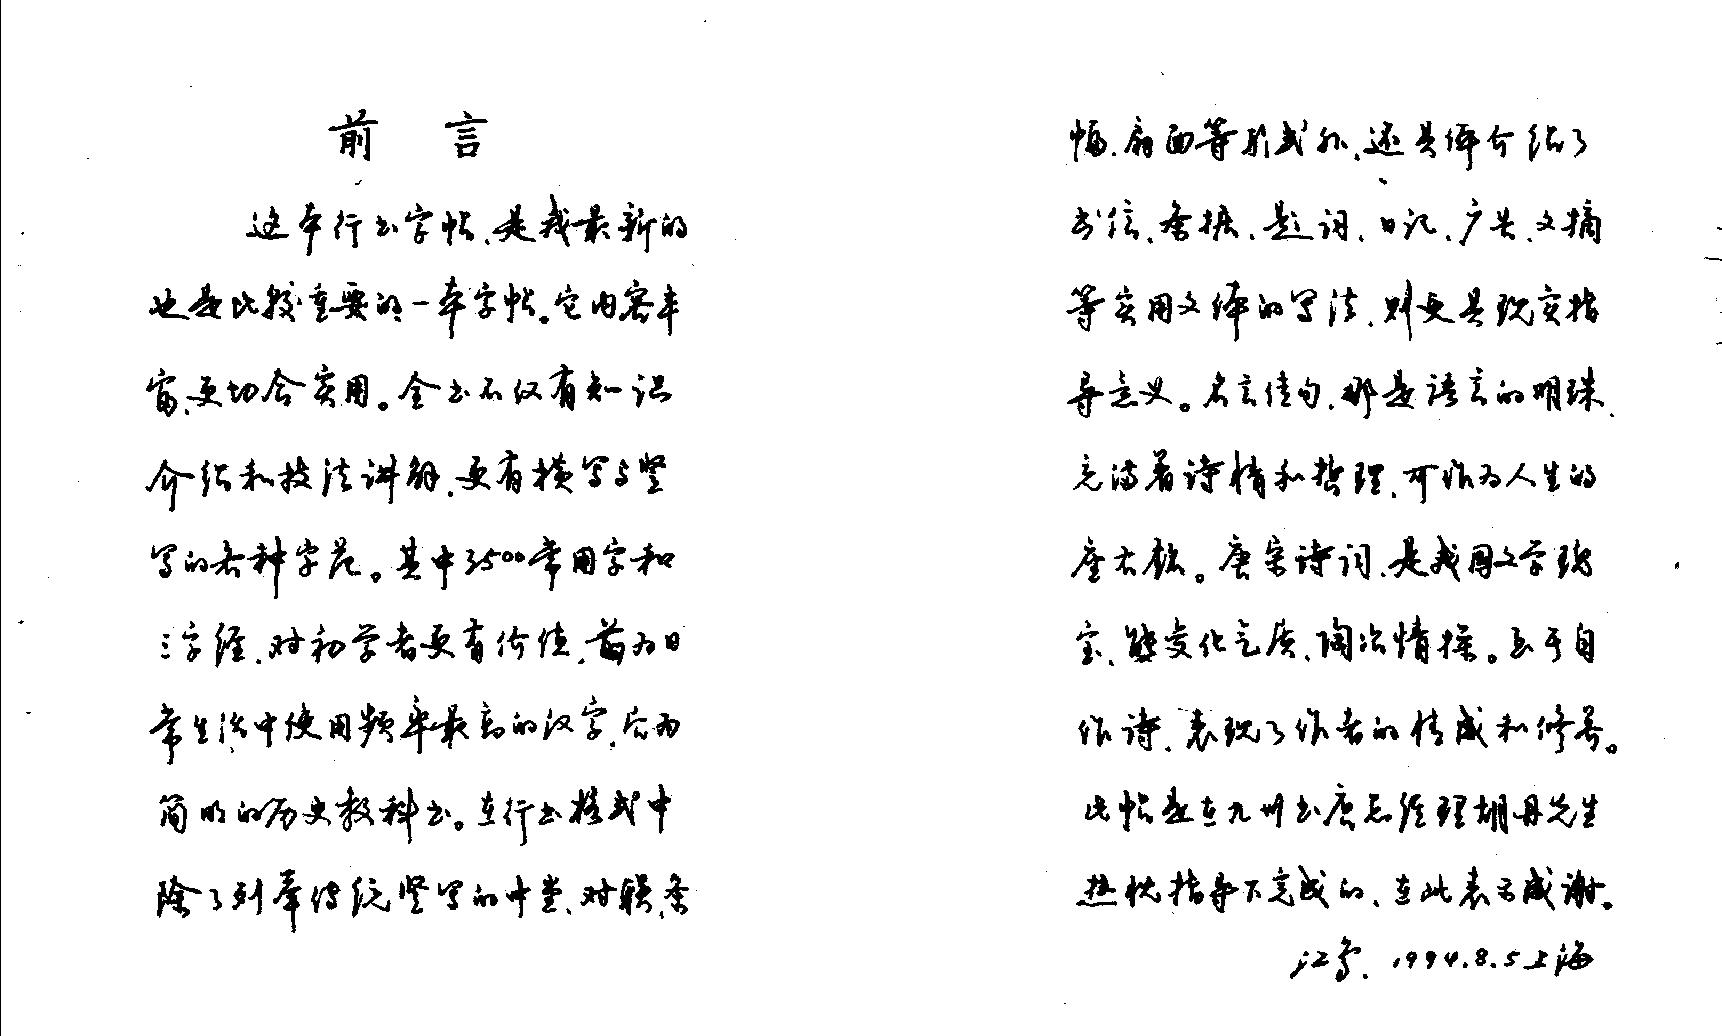 前言
这本行书字帖、是我最新的
也是比较重要的一本字帖。它内容丰
富、更切合实用。全书不仅有知识
介绍和技法讲解、更有横写与竖
写的各种字范。其中3500常用字和
三字经、对初学者更有价值、前为日
常生活中使用频率最高的汉字、后为
简明的历史教科书。在行书格式中
除了列举传统竖写的中堂、对联、条
幅、扇面等形式外、还具体介绍了
书信、条据、题词、日记、广告、文摘
等实用文体的写法、则更具现实指
导意义。名言佳句、那是语言的明珠、
充满着诗情和哲理、可作为人生的
座右铭。唐宋诗词、是我国文学瑰
宝、能变化气质、陶冶情操。至于自
作诗、表现了作者的情感和修养。
此帖是在九州书店总经理胡丹先生
热忱指导下完成的、在此表示感谢。
江鸟、1994.8.5上海